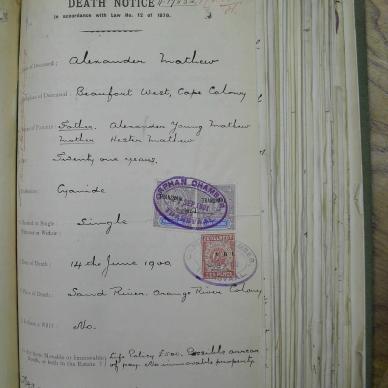 DEATH NOTICE
In accordance with Law No. 12 of 1870.
of Deceased : Alexander Mathew
of Deceased : Beaufort West, Cape Colony
of Parents : Father. Alexander Young Mathew
Mother Hester Mathew
Twenty one years.
ORPHAN CHAMBER
TRANSVAAL
Single
of Death : 14th June 1900
of Death : Sand River. Orange River Colony
a Will : No.
Movable or Immovable Life Policy £500. Possible arrears
of pay. No immovable property